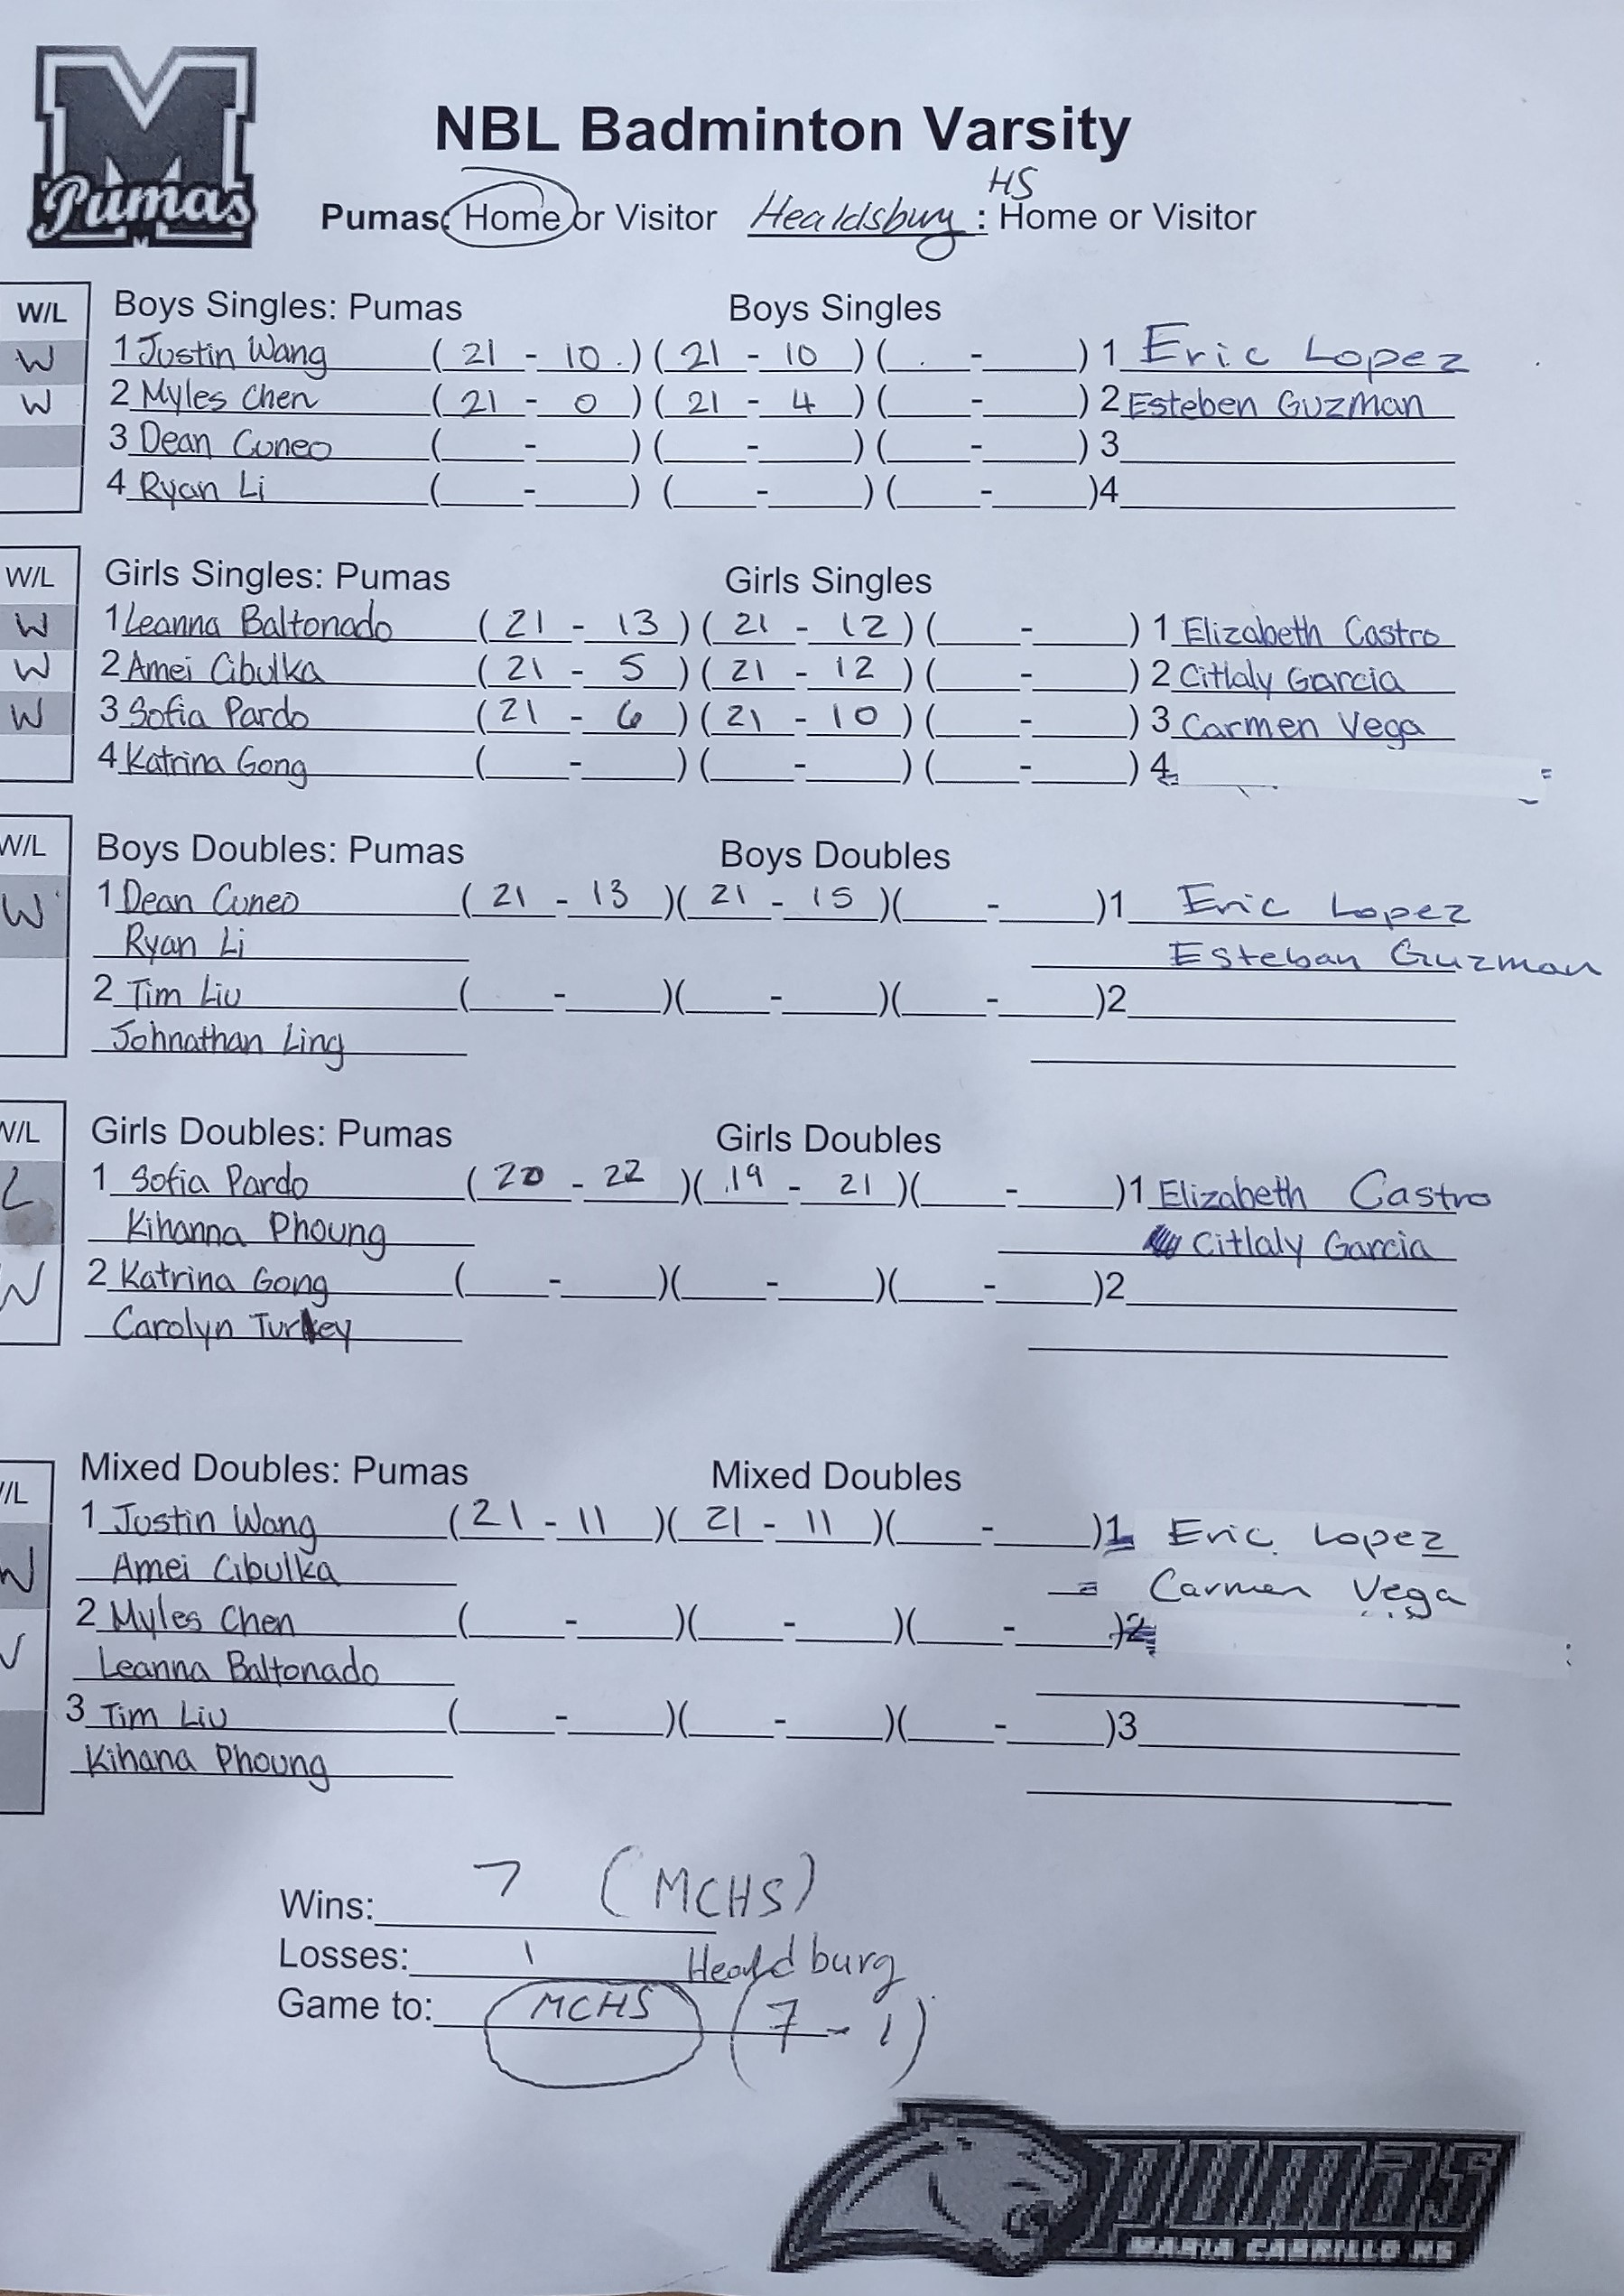 M
Pumas
NBL Badminton Varsity
HS
Pumas: Home or Visitor Healdsburg : Home or Visitor
W/L Boys Singles: Pumas Boys Singles
W 1 Justin Wang (21 - 10) (21 - 10) ( - ) 1 Eric Lopez
W 2 Myles Chen (21 - 0) (21 - 4) ( - ) 2 Esteben Guzman
3 Dean Cuneo ( - ) ( - ) ( - ) 3
4 Ryan Li ( - ) ( - ) ( - ) 4
W/L Girls Singles: Pumas Girls Singles
W 1 Leanna Baltonado (21 - 13) (21 - 12) ( - ) 1 Elizabeth Castro
W 2 Amei Cibulka (21 - 5) (21 - 12) ( - ) 2 Citlaly Garcia
W 3 Sofia Pardo (21 - 6) (21 - 10) ( - ) 3 Carmen Vega
4 Katrina Gong ( - ) ( - ) ( - ) 4
W/L Boys Doubles: Pumas Boys Doubles
W 1 Dean Cuneo (21 - 13) (21 - 15) ( - ) 1 Eric Lopez
Ryan Li Esteban Guzman
2 Tim Liu ( - ) ( - ) ( - ) 2
Johnathan Ling
W/L Girls Doubles: Pumas Girls Doubles
L 1 Sofia Pardo (20 - 22) (19 - 21) ( - ) 1 Elizabeth Castro
Kihanna Phoung Citlaly Garcia
W 2 Katrina Gong ( - ) ( - ) ( - ) 2
Carolyn Turkey
/L Mixed Doubles: Pumas Mixed Doubles
1 Justin Wang (21 - 11) (21 - 11) ( - ) 1 Eric Lopez
W Amei Cibulka Carmen Vega
2 Myles Chen ( - ) ( - ) ( - ) 2
Leanna Baltonado
3 Tim Liu ( - ) ( - ) ( - ) 3
Kihana Phoung
Wins: 7 (MCHS)
Losses: 1 Healdburg
Game to: MCHS (7 - 1)
PUMAS
MARIA CARRILLO HS